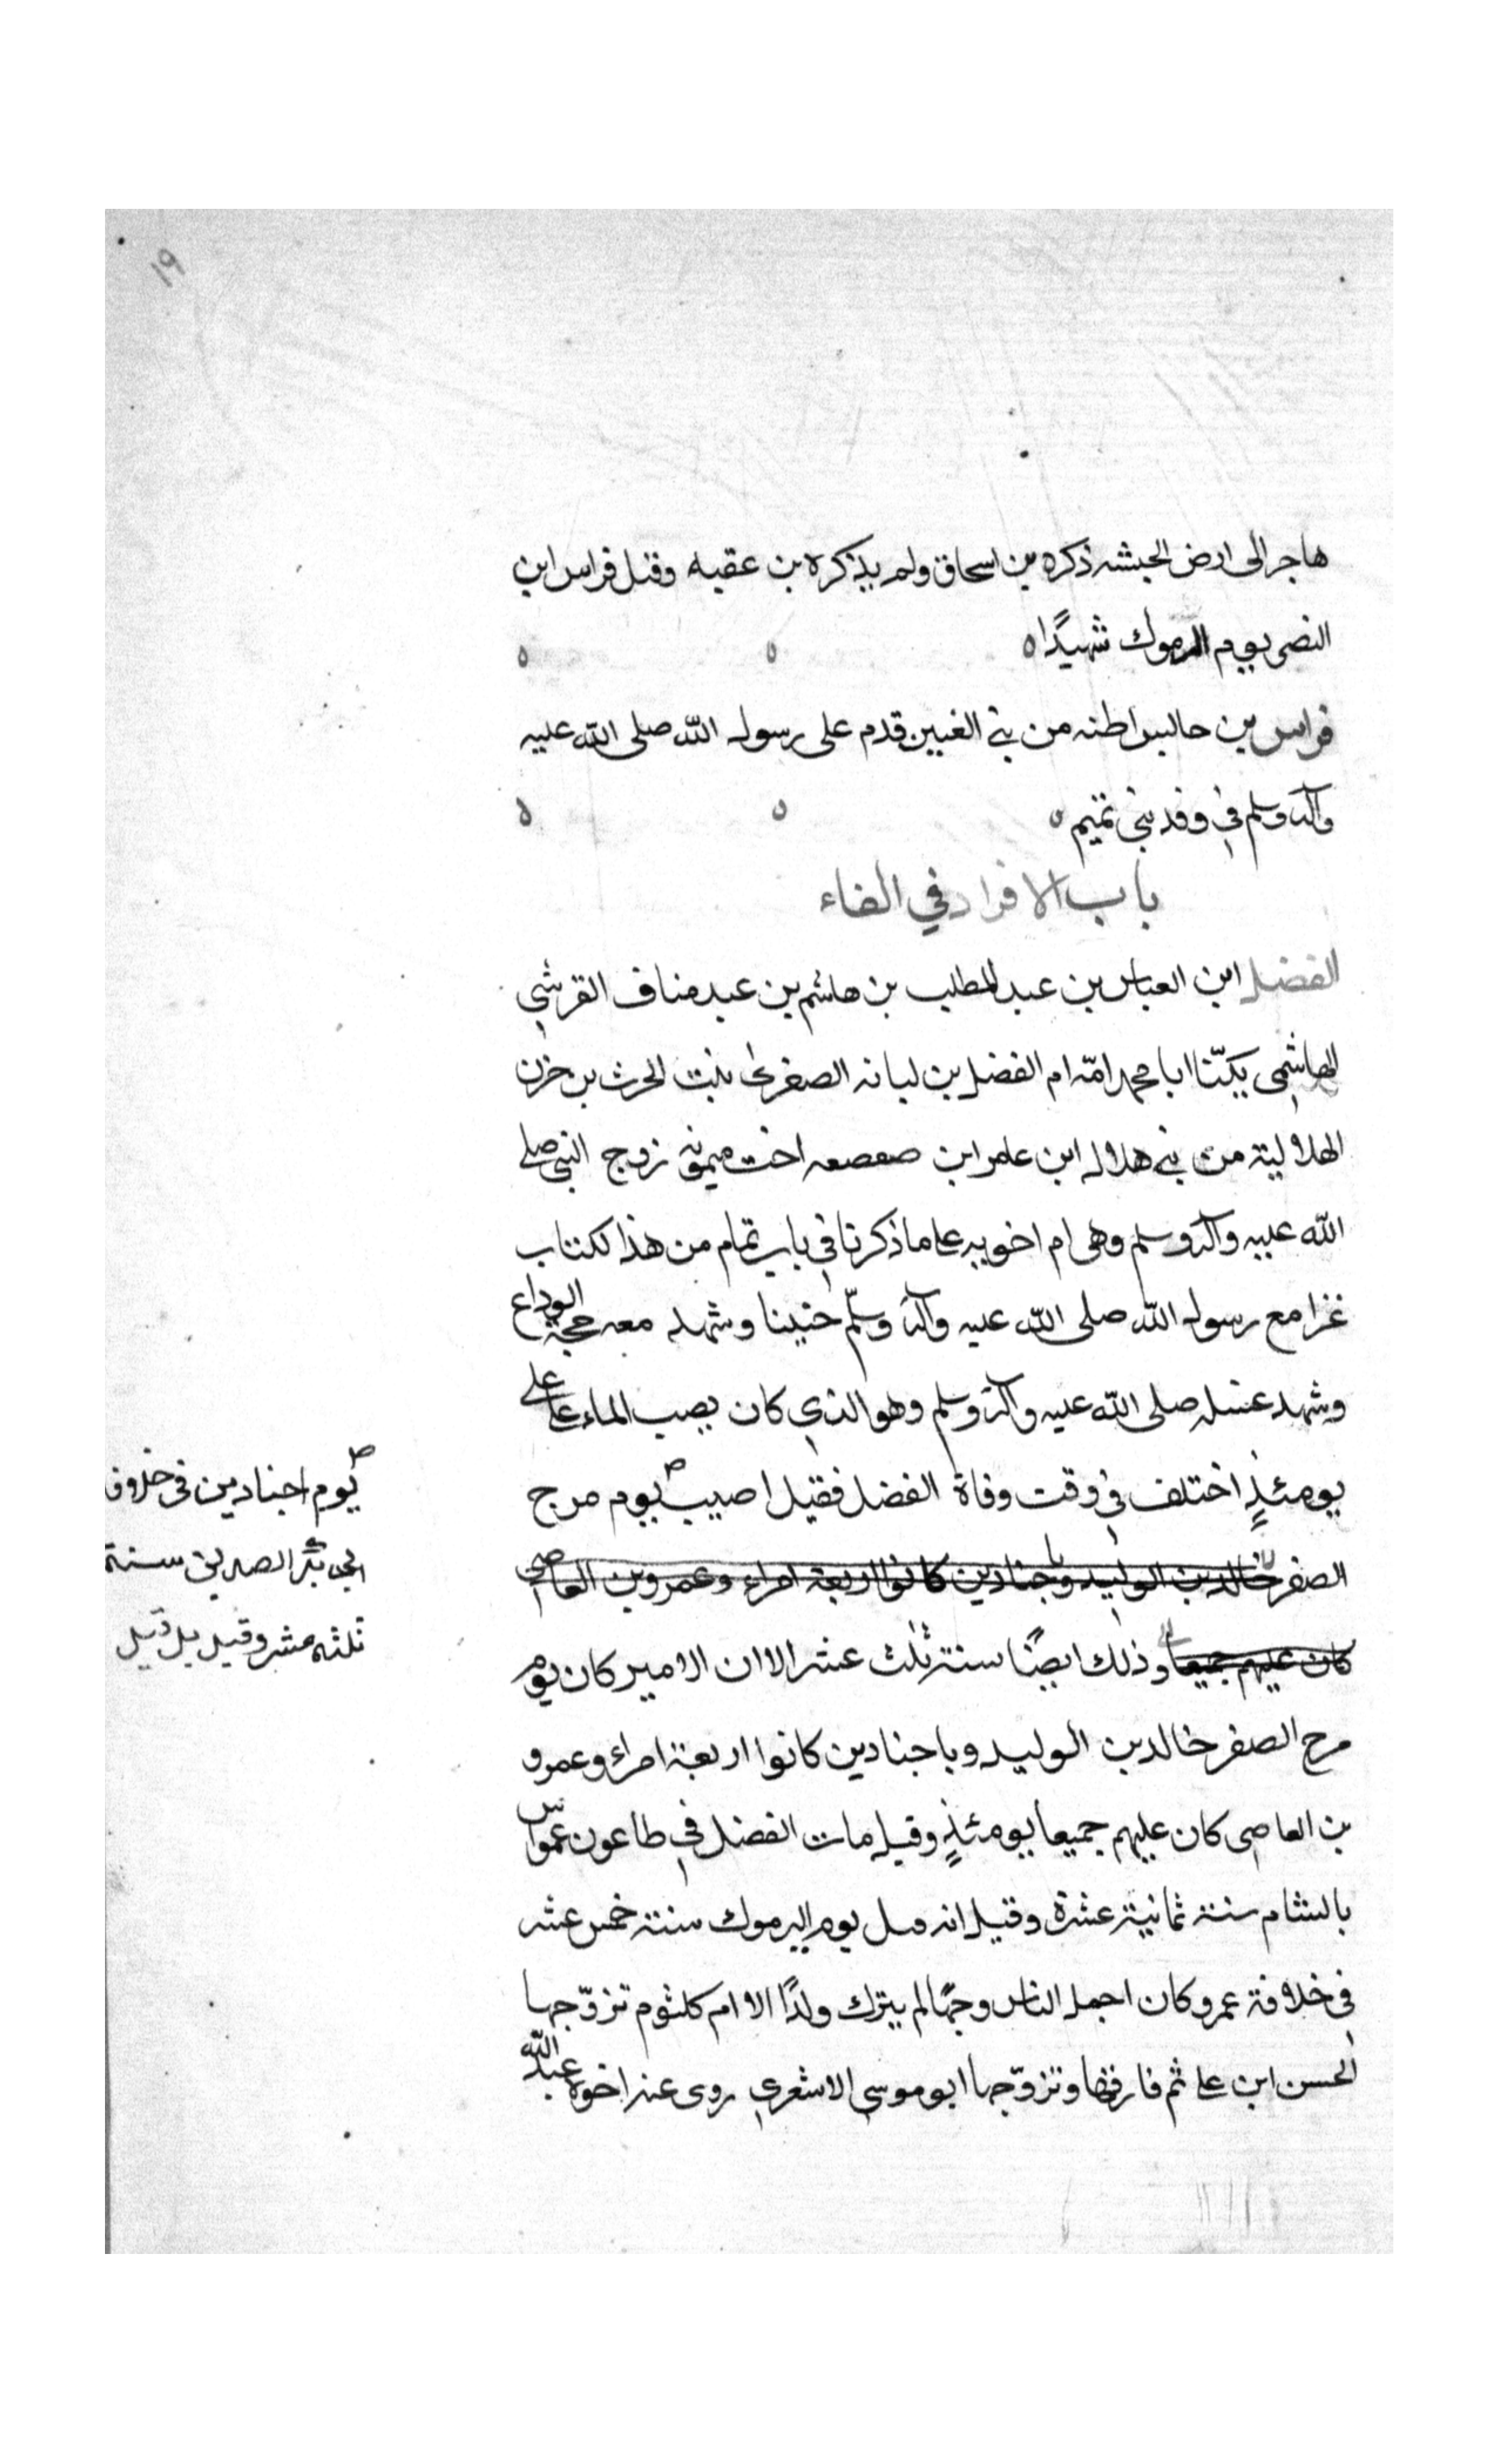 ١٩
هاجر الى ارض الحبشه ذكره بن اسحاق ولم يذكره بن عقبه وقتل فراس ابن
النضر يوم اليرموك شهيدًا ه ه ه
فراس بن حابس اظنه من بني العنبر قدم على رسول الله صلى الله عليه
وآله وسلم في وفد بني تميم ه ه ه
باب الافراد في الفاء
الفضل ابن العباس بن عبد المطلب بن هاشم بن عبد مناف القرشي
الهاشمي يكنّا ابا محمد امّه ام الفضل بن لبانه الصغرى بنت الحرث بن حزن
الهلالية من بني هلال ابن عامر ابن صعصعه اخت ميمونه زوج النبي صلى
الله عليه وآله وسلم وهى ام اخويه على ما ذكرنا في باب تمام من هذا لكتاب
غزا مع رسول الله صلى الله عليه وآله وسلّم حنينا وشهد معه حجة الوداع
وشهد غسله صلى الله عليه وآله وسلم وهو الذي كان يصب الماء على على
يومئذٍ اختلف في وقت وفاة الفضل فقيل اصيب يوم مرج
الصفر خالد بن الوليد وباجنادين كانوا اربعة امراء وعمرو بن العاصى
كان عليهم جميعا وذلك ايضًا سنة ثلث عشر الا ان الامير كان يوم
مرج الصفر خالد بن الوليد وباجنادين كانوا اربعة امراء وعمرو
بن العاصى كان عليهم جميعا يومئذٍ وقيل مات الفضل في طاعون عمواس
بالشام سنة ثمانية عشرة وقيل انه قتل يوم اليرموك سنة خمس عشر
في خلافة عمر وكان اجمل الناس وجهًا لم يترك ولدًا الا ام كلثوم تزوّجها
الحسن ابن على ثم فارقها وتزوّجها ابو موسى الاشعري روى عنه اخوه عبد الله
ص يوم اجنادين في خلاف
ابي بكر الصديق سنة
ثلثه عشر وقيل بل قتل